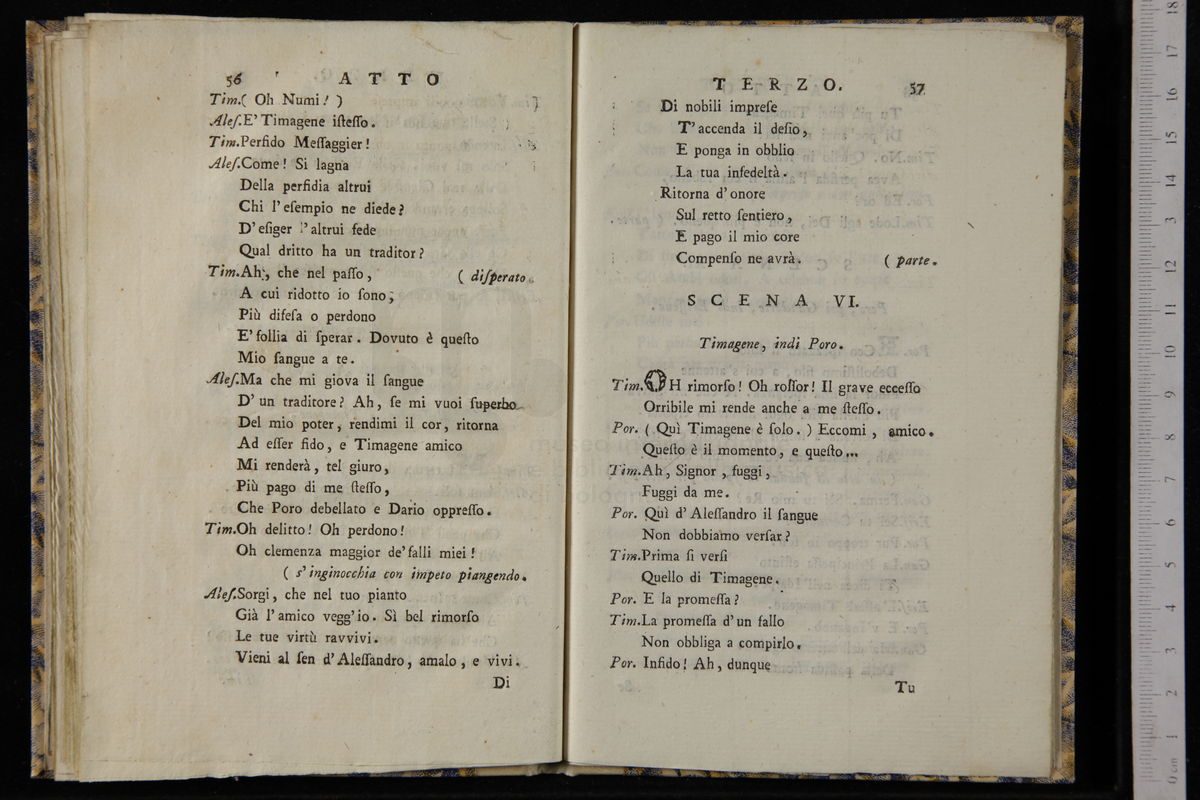 56 ATTO
Tim.( Oh Numi! )
Aleſ.E' Timagene iſteſſo.
Tim.Perfido Meſſaggier!
Aleſ.Come! Si lagna
Della perfidia altrui
Chi l'eſempio ne diede?
D'eſiger l'altrui fede
Qual dritto ha un traditor?
Tim.Ah, che nel paſſo, ( diſperato.
A cui ridotto io ſono,
Più difeſa o perdono
E' follia di ſperar. Dovuto è queſto
Mio ſangue a te.
Aleſ.Ma che mi giova il ſangue
D' un traditore? Ah, ſe mi vuoi ſuperbo
Del mio poter, rendimi il cor, ritorna
Ad eſſer fido, e Timagene amico
Mi renderà, tel giuro,
Più pago di me ſteſſo,
Che Poro debellato e Dario oppreſſo.
Tim.Oh delitto! Oh perdono!
Oh clemenza maggior de' falli miei!
( s' inginocchia con impeto piangendo.
Aleſ.Sorgi, che nel tuo pianto
Già l'amico vegg'io. Sì bel rimorſo
Le tue virtù ravvivi.
Vieni al ſen d'Aleſſandro, amalo, e vivi.
Di
TERZO. 57
Di nobili impreſe
T'accenda il deſio,
E ponga in obblio
La tua infedeltà.
Ritorna d'onore
Sul retto ſentiero,
E pago il mio core
Compenſo ne avrà. ( parte.
SCENA VI.
Timagene, indi Poro.
Tim. OH rimorſo! Oh roſſor! Il grave ecceſſo
Orribile mi rende anche a me ſteſſo.
Por. ( Quì Timagene è ſolo. ) Eccomi, amico.
Queſto è il momento, e queſto...
Tim.Ah, Signor, fuggi,
Fuggi da me.
Por. Quì d'Aleſſandro il ſangue
Non dobbiamo verſar?
Tim.Prima ſi verſi
Quello di Timagene.
Por. E la promeſſa?
Tim.La promeſſa d'un fallo
Non obbliga a compirlo.
Por. Infido! Ah, dunque
Tu